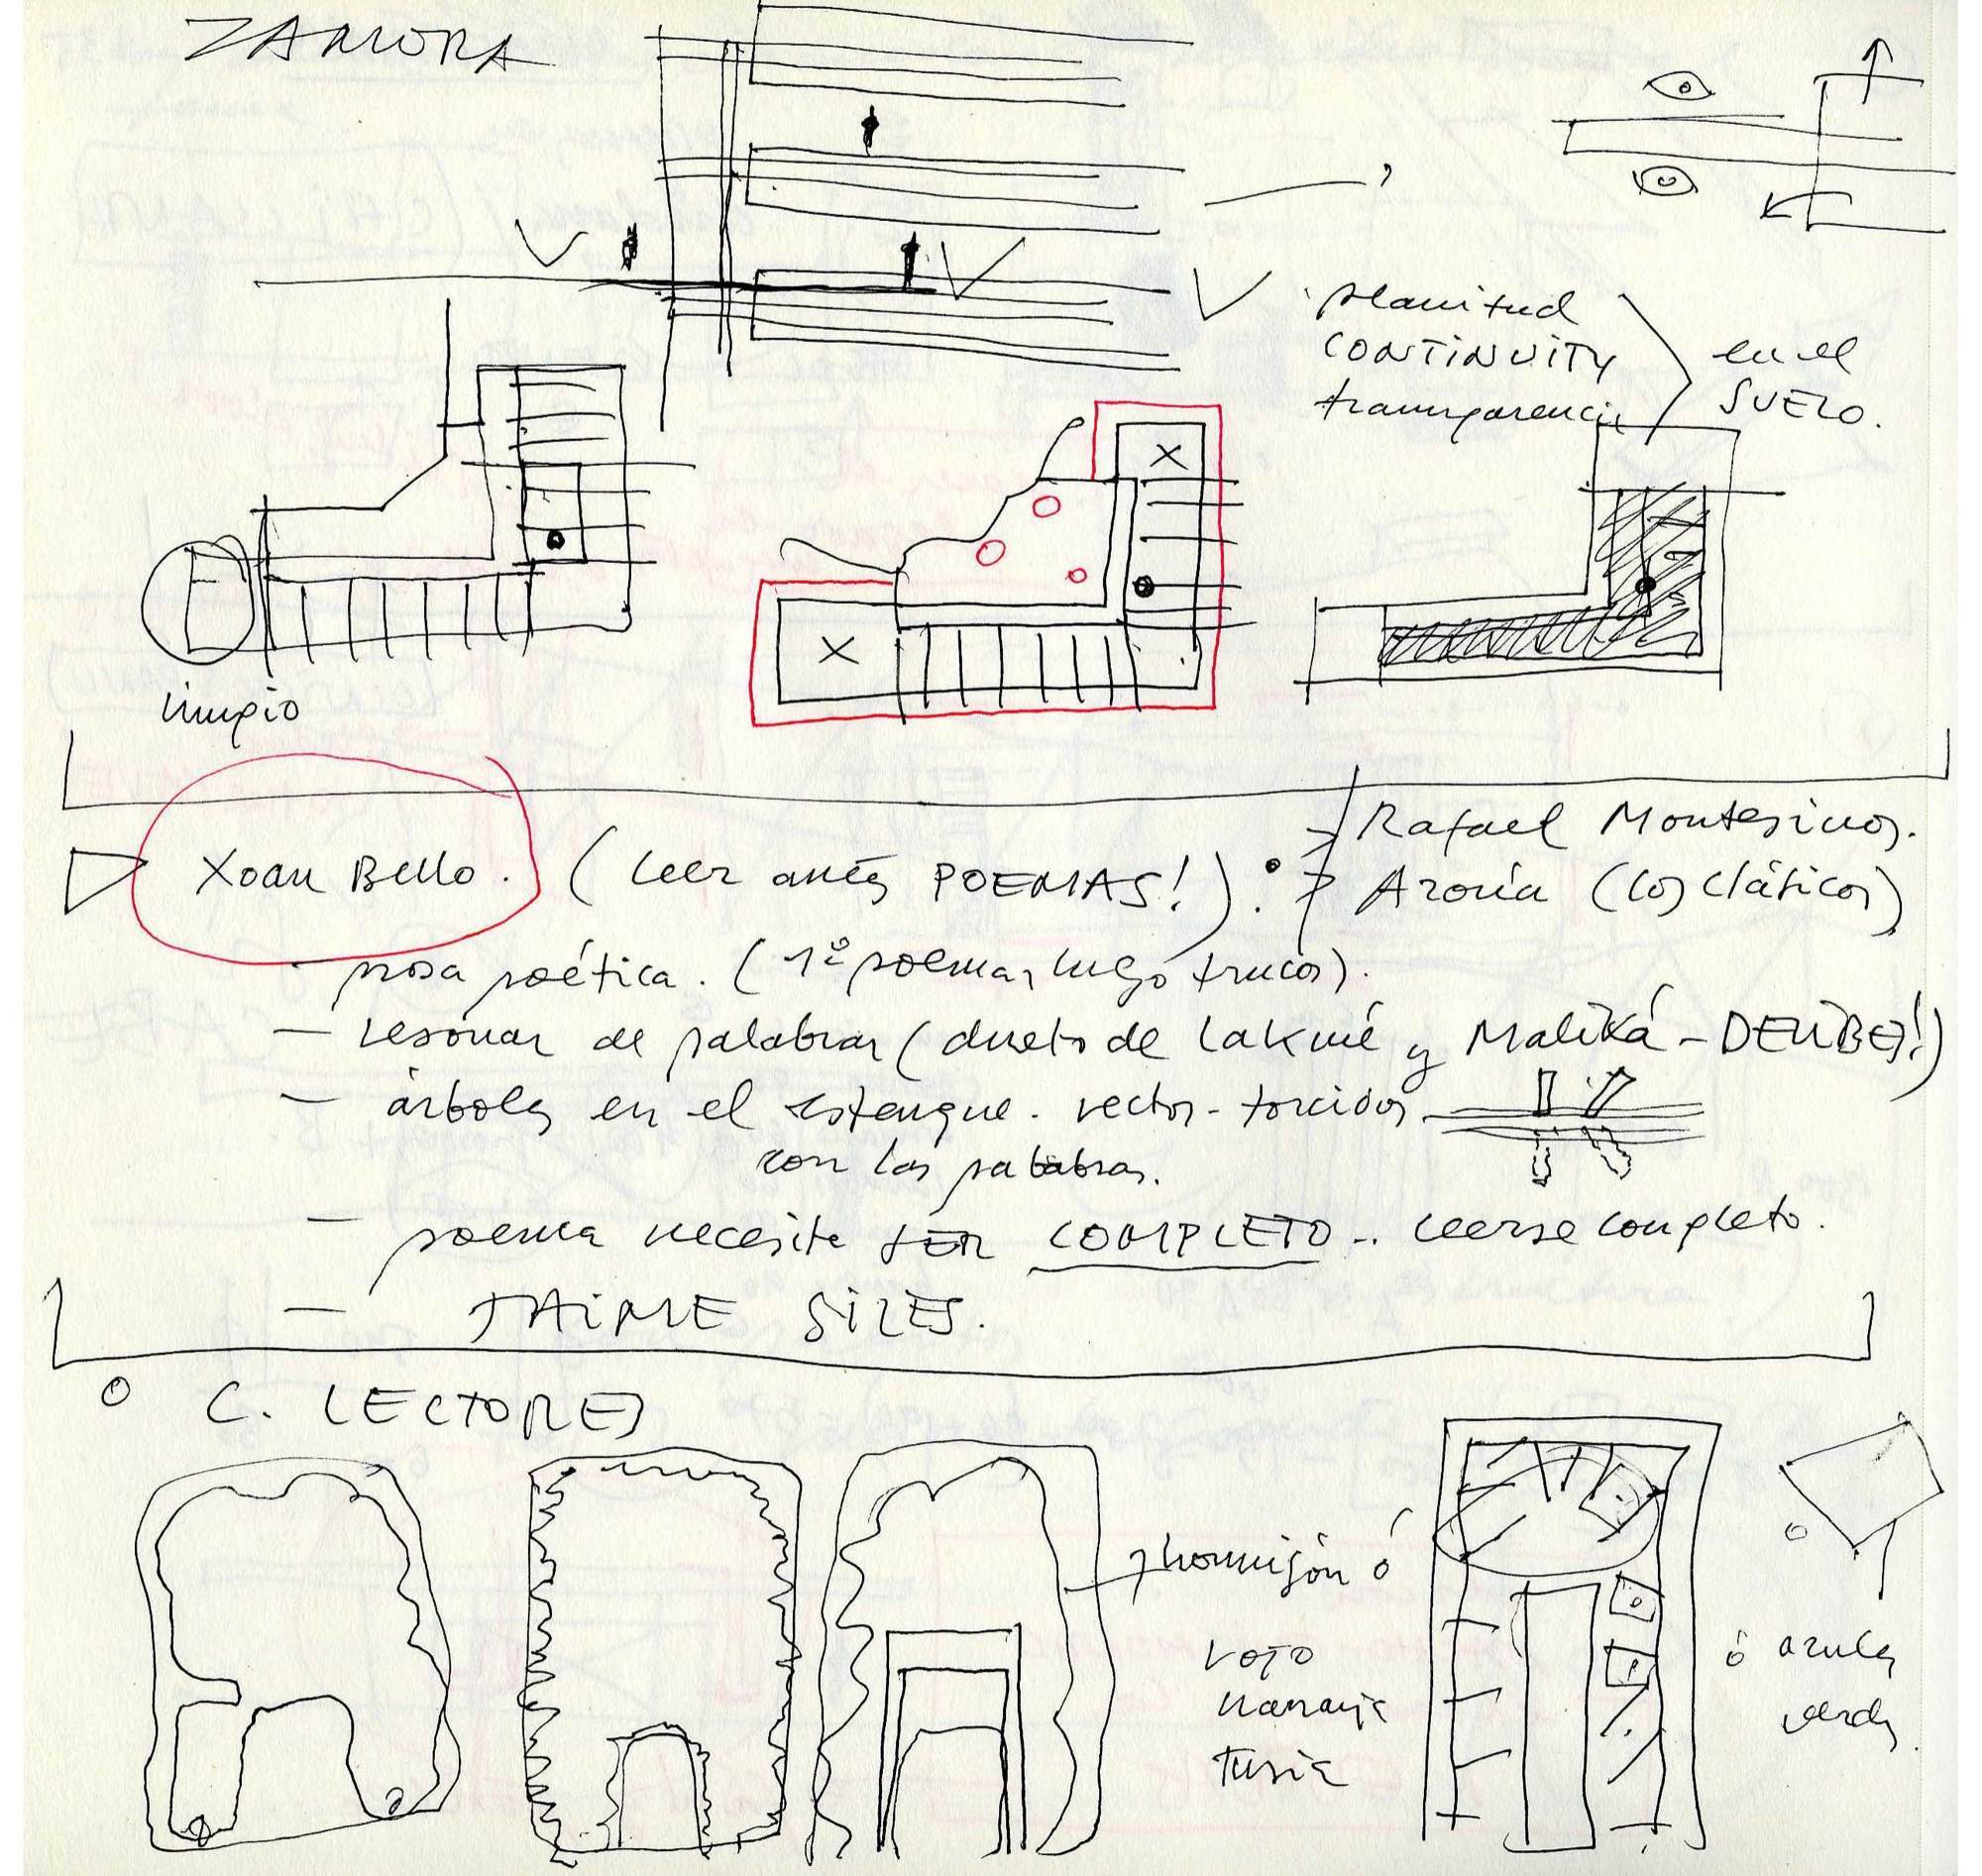 ZAMORA
planitud
CONTINUITY
transparencia
en el
SUELO.
limpio
Rafael Montesinos.
Xoan Bello. (leer antes POEMAS!).
Azorín (los clásicos)
- prosa poética. (1º poemas, luego trucos).
- resonar de palabras (dueto de Lakmé y Maliká - DELIBES!)
- árboles en el estanque. rectos - torcidos
con las palabras.
- poema necesita SER COMPLETO.. leerse completo.
- JAIME SILES.
o C. LECTORES
hormigón ó
rojo
naranja
ó azules
verdes